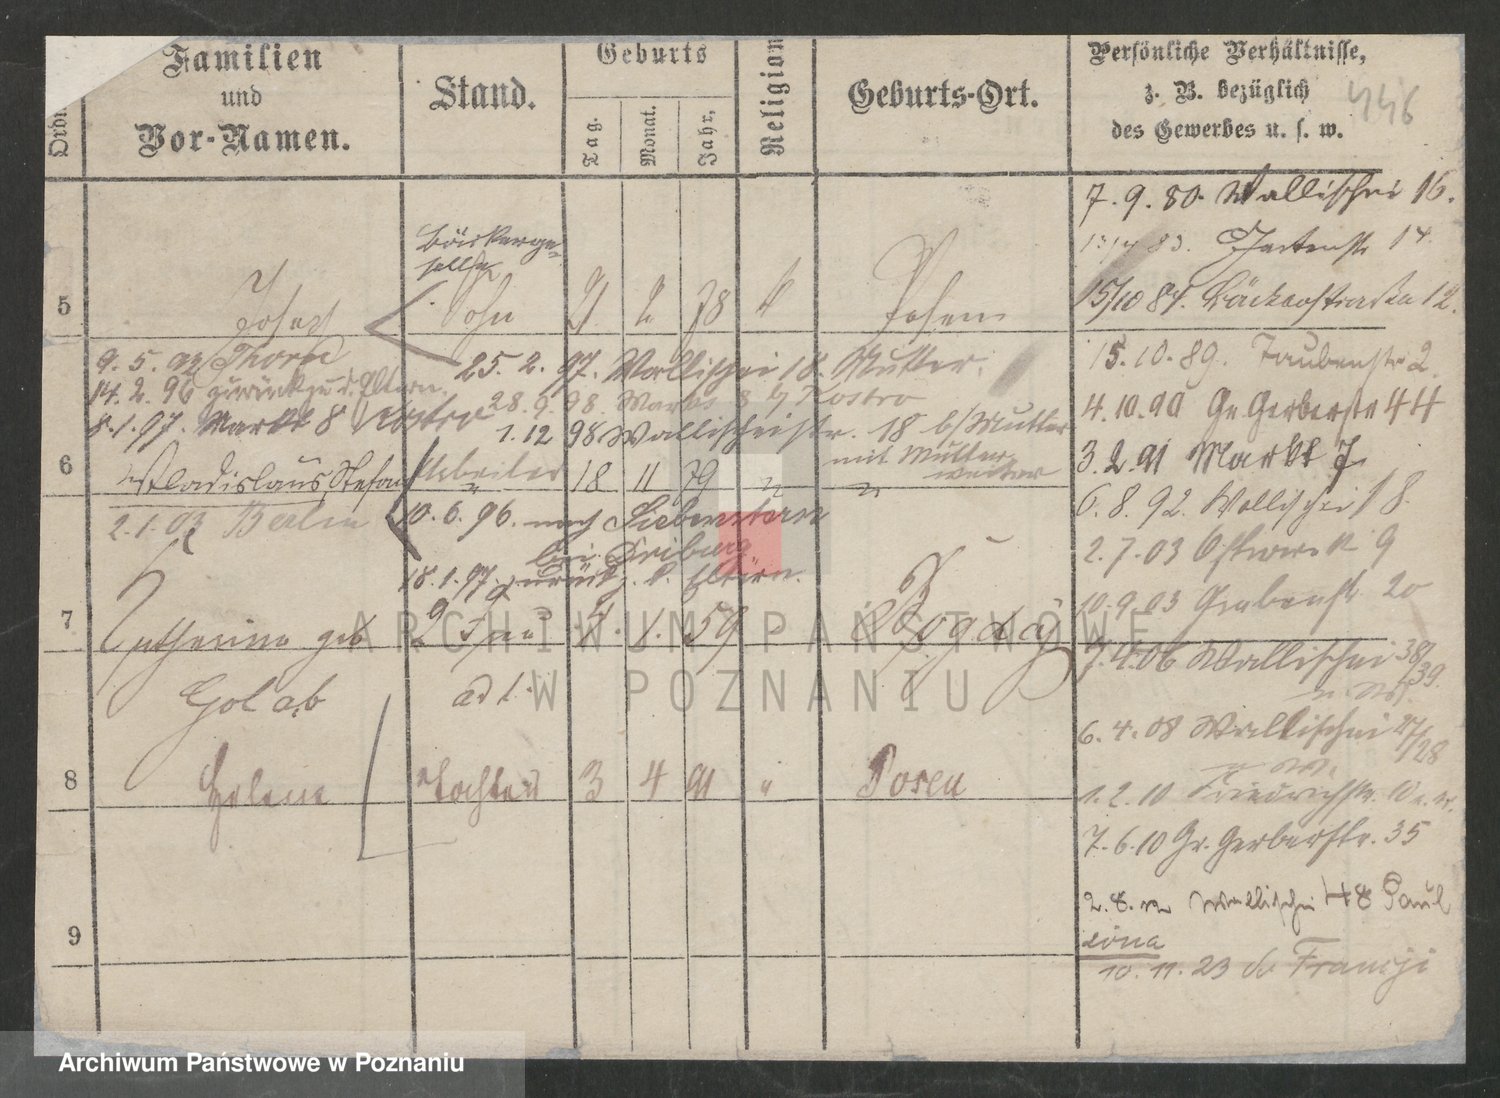 Familien
und
Vor-Namen.
Stand.
Geburts
Tag.
Monat.
Jahr,
Religion
Geburts-Ort.
Persönliche Verhältnisse,
z. B. bezüglich
des Gewerbes u. s. w.
446
5
Bäckerge-
selle
Joseph Sohn 2 78 k Posen
9. 5. 92 Thorn
14. 2. 96 zurück zu d. Eltern.
8. 1. 97. Markt 8 Kostro
25. 2. 97. Wallischei 18. Mutter.
28. 9. 98. Markt 8 b/ Kostro
1. 12 98 Wallischeistr. 18 b/ Mutter
mit Mutter
weiter
6
Wladislaus Stefan Arbeiter 18 11 79 " "
2. 1. 03 Berlin
10. 6. 96. nach
bei
18. 1. 97. zurück z. d. Eltern.
7
Catharina geb Frau 1. 59
Golab
ad 1.
8
Helene Tochter 3 4 91 " Posen
9
7. 9. 80. Wallischei 16.
83. Gartenstr 14.
15/10 87. Bäckerstraße 12.
15. 10. 89. Taubenstr 2.
4. 10. 90 Gr. Gerberstr 44
3. 2. 91 Markt 7
6. 8. 92. Wallischei 18.
2. 7. 03 9
10. 9. 03 Grabenstr 20
7. 4. 06 Wallischei 38/39.
6. 4. 08 Wallischei 27/28
1. 2. 10 Friedrichstr. 10
7. 6. 10 Gr. Gerberstr. 35
2. 8. Wallischei 48 Paul
ina
10. 11. 23 do Franzji
ARCHIWUM PAŃSTWOWE
W POZNANIU
Archiwum Państwowe w Poznaniu